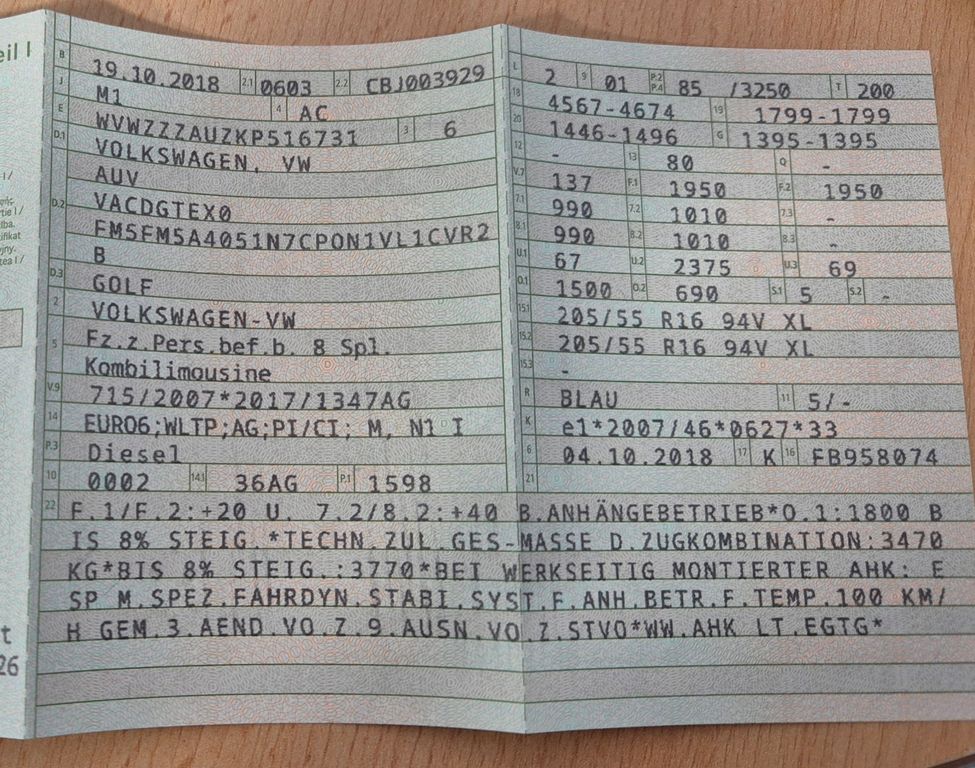 eil I
B 19.10.2018 2.1 0603 2.2 CBJ003929
J M1 4 AC
E WVWZZZAUZKP516731 3 6
D.1 VOLKSWAGEN, VW
AUV
D.2 VACDGTEX0
FM5FM5A4051N7CPON1VL1CVR2
B
D.3 GOLF
2 VOLKSWAGEN-VW
5 Fz.z.Pers.bef.b. 8 Spl.
Kombilimousine
V.9 715/2007*2017/1347AG
14 EURO6;WLTP;AG;PI/CI; M, N1 I
P.3 Diesel
10 0002 14.1 36AG P.1 1598
L 2 9 01 P.2 P.4 85 /3250 T 200
18 4567-4674 19 1799-1799
20 1446-1496 G 1395-1395
12 - 13 80 Q -
V.7 137 F.1 1950 F.2 1950
7.1 990 7.2 1010 7.3 -
8.1 990 8.2 1010 8.3 -
U.1 67 U.2 2375 U.3 69
O.1 1500 O.2 690 S.1 5 S.2 -
15.1 205/55 R16 94V XL
15.2 205/55 R16 94V XL
15.3 -
R BLAU 11 5/-
K e1*2007/46*0627*33
6 04.10.2018 17 K 16 FB958074
21
22 F.1/F.2:+20 U. 7.2/8.2:+40 B.ANHÄNGEBETRIEB*O.1:1800 B
IS 8% STEIG.*TECHN.ZUL.GES-MASSE D.ZUGKOMBINATION:3470
KG*BIS 8% STEIG.:3770*BEI WERKSEITIG MONTIERTER AHK: E
SP M.SPEZ.FAHRDYN.STABI.SYST.F.ANH.BETR.F.TEMP.100 KM/
H GEM.3.AEND.VO.Z.9.AUSN.VO.Z.STVO*WW.AHK LT.EGTG*
t
26